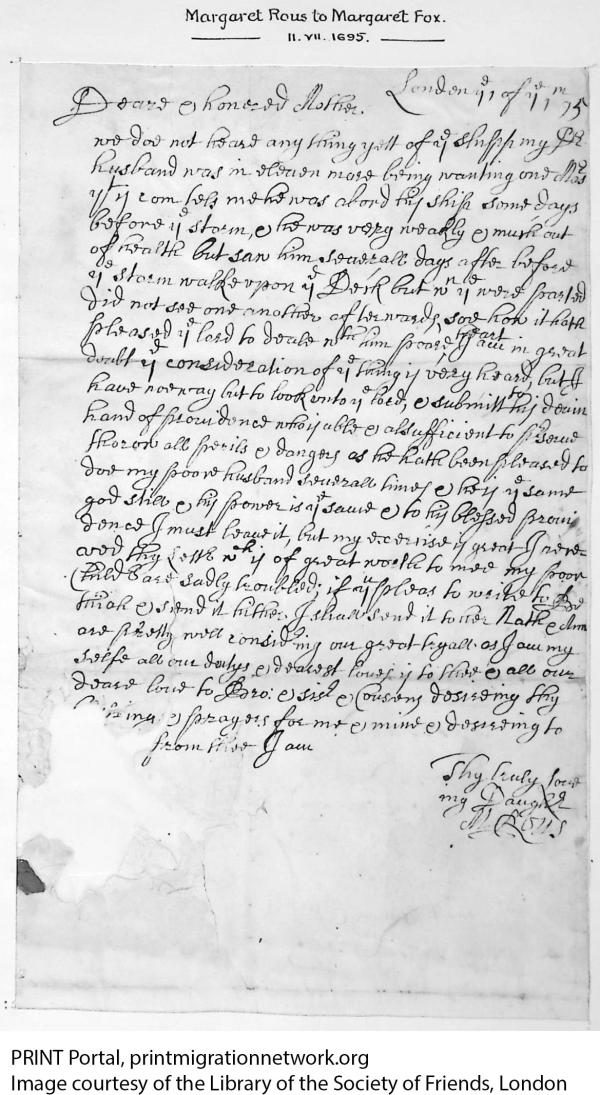 Margaret Rous to Margaret Fox.
11. VII. 1695.
London ye 1 of ye 7 m 95
Deare & honered Mother.
we doe not heare any thing yett of ye shipp my Dr
husband was in eleven more being wanting one
yt ys com tels me he was abord his ship some days
before ye storm, & he was very weakly & much out
of health but saw him severall days after before
ye storm walke upon ye Deck but wn ye were parted
did not see one another afterwards, soe how it hath
pleased ye lord to deale wth him poore heart I am in great
doubt ye consideration of ye thing is very heard, but I
have noe way but to look unto ye lord, & submitt to his devin
hand of providence who is able & alsufficient to preserve
thorow all perils & dangers as he hath been pleased to
doe my poore husband severall times & he is ye same
god still & his power is ye same & to his blessed provi
dence I must leave it, but my exercise is great I rece
aved thy Letter wch is of great worth to mee my poor
Child are sadly troubled; if yu pleas to write to
& send it hither I shall send it to her Nath & Ann
are pretty well considring our great tryall. as I am my
selfe all our dutys & dearest loves is to thee & all our
deare love to Bro: & sistr & Cousens desireing thy
& prayers for me & mine & desireing to
from thee I am
Thy truly love
ing Daughtr
M Rous
PRINT Portal, printmigrationnetwork.org
Image courtesy of the Library of the Society of Friends, London